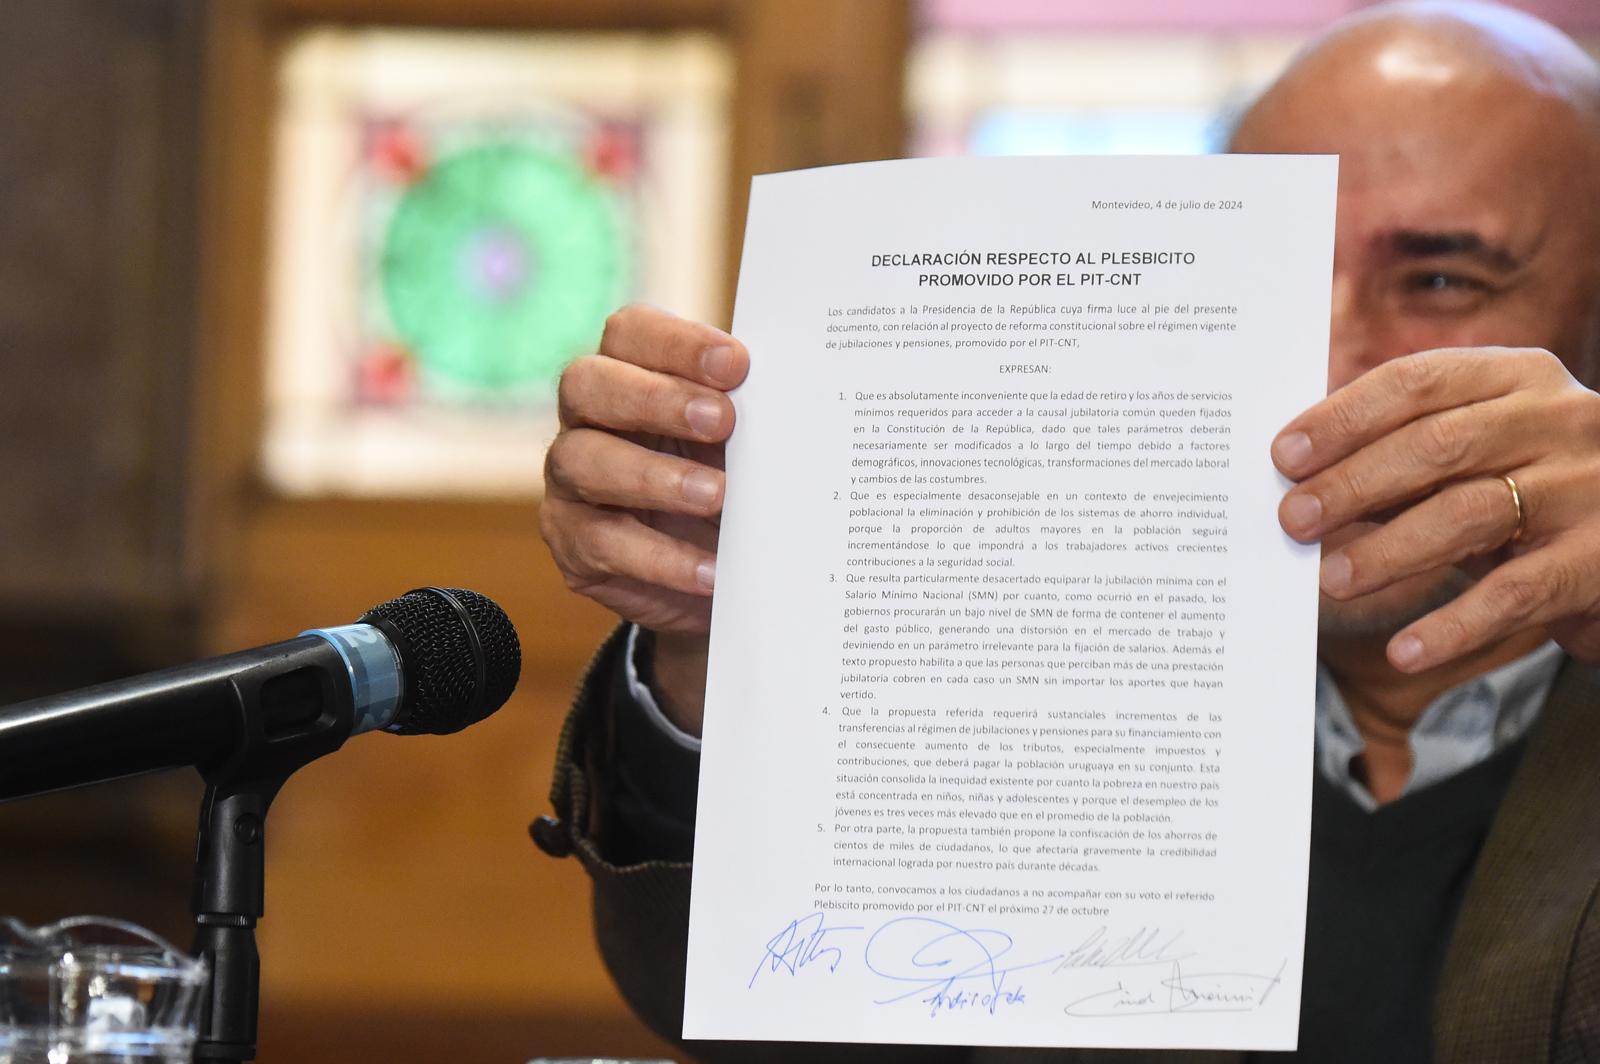 Montevideo, 4 de julio de 2024
DECLARACIÓN RESPECTO AL PLESBICITO
PROMOVIDO POR EL PIT-CNT
Los candidatos a la Presidencia de la República cuya firma luce al pie del presente
documento, con relación al proyecto de reforma constitucional sobre el régimen vigente
de jubilaciones y pensiones, promovido por el PIT-CNT,
EXPRESAN:
1. Que es absolutamente inconveniente que la edad de retiro y los años de servicios
mínimos requeridos para acceder a la causal jubilatoria común queden fijados
en la Constitución de la República, dado que tales parámetros deberán
necesariamente ser modificados a lo largo del tiempo debido a factores
demográficos, innovaciones tecnológicas, transformaciones del mercado laboral
y cambios de las costumbres.
2. Que es especialmente desaconsejable en un contexto de envejecimiento
poblacional la eliminación y prohibición de los sistemas de ahorro individual,
porque la proporción de adultos mayores en la población seguirá
incrementándose lo que impondrá a los trabajadores activos crecientes
contribuciones a la seguridad social.
3. Que resulta particularmente desacertado equiparar la jubilación mínima con el
Salario Mínimo Nacional (SMN) por cuanto, como ocurrió en el pasado, los
gobiernos procurarán un bajo nivel de SMN de forma de contener el aumento
del gasto público, generando una distorsión en el mercado de trabajo y
deviniendo en un parámetro irrelevante para la fijación de salarios. Además el
texto propuesto habilita a que las personas que perciban más de una prestación
jubilatoria cobren en cada caso un SMN sin importar los aportes que hayan
vertido.
4. Que la propuesta referida requerirá sustanciales incrementos de las
transferencias al régimen de jubilaciones y pensiones para su financiamiento con
el consecuente aumento de los tributos, especialmente impuestos y
contribuciones, que deberá pagar la población uruguaya en su conjunto. Esta
situación consolida la inequidad existente por cuanto la pobreza en nuestro país
está concentrada en niños, niñas y adolescentes y porque el desempleo de los
jóvenes es tres veces más elevado que en el promedio de la población.
5. Por otra parte, la propuesta también propone la confiscación de los ahorros de
cientos de miles de ciudadanos, lo que afectaría gravemente la credibilidad
internacional lograda por nuestro país durante décadas.
Por lo tanto, convocamos a los ciudadanos a no acompañar con su voto el referido
Plebiscito promovido por el PIT-CNT el próximo 27 de octubre